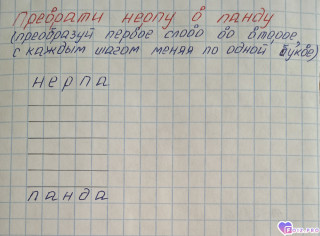 Преврати нерпу в панду
(преобразуй первое слово во второе,
с каждым шагом меняя по одной букве)
нерпа
панда